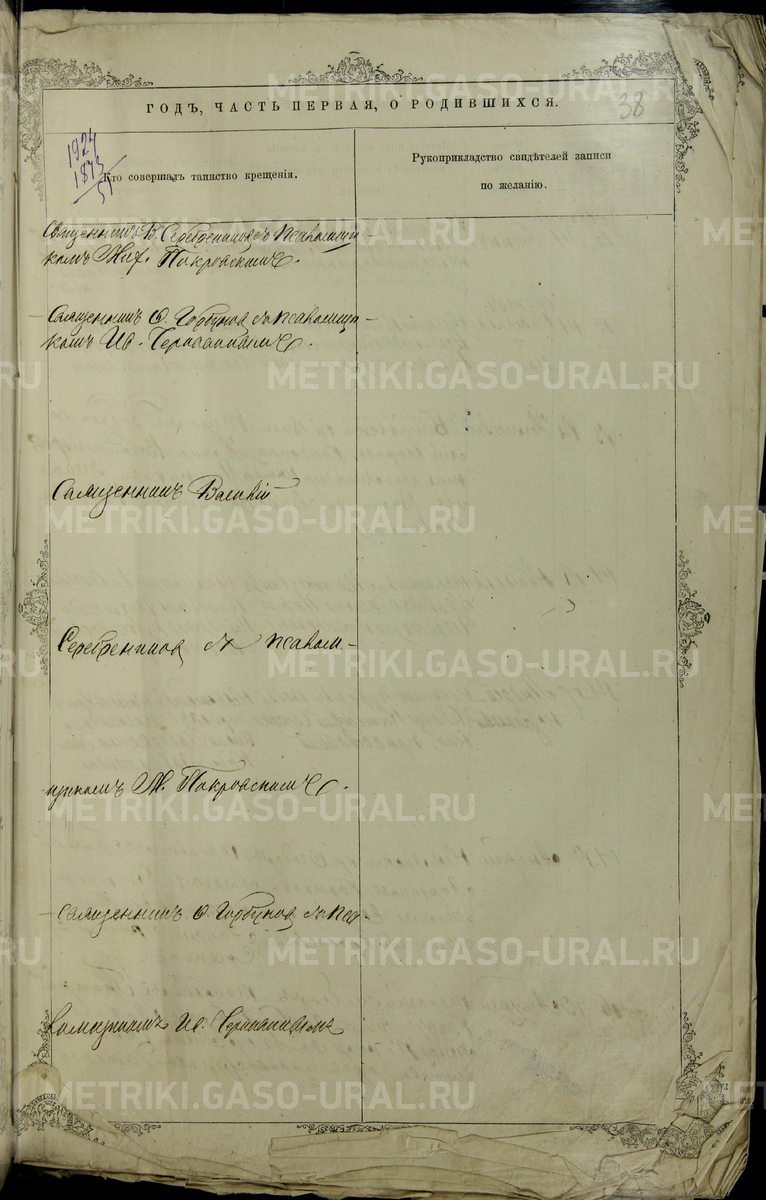 ГОДЪ, ЧАСТЬ ПЕРВАЯ, О РОДИВШИХСЯ.
38
1924
1873
51
Кто совершалъ таинство крещенія.
Рукоприкладство свидѣтелей записи
по желанію.
Священникъ В. Серебрениковъ съ псаломщи-
комъ Мих. Покровскимъ.
Священникъ Ѳ. Горбуновъ съ псаломщи-
комъ Ив.
Священникъ Василій
Серебрениковъ съ псалом-
щикомъ М. Покровскимъ.
Священникъ Ѳ. Горбуновъ съ пса-
ломщикомъ Ив.
METRIKI.GASO-URAL.RU